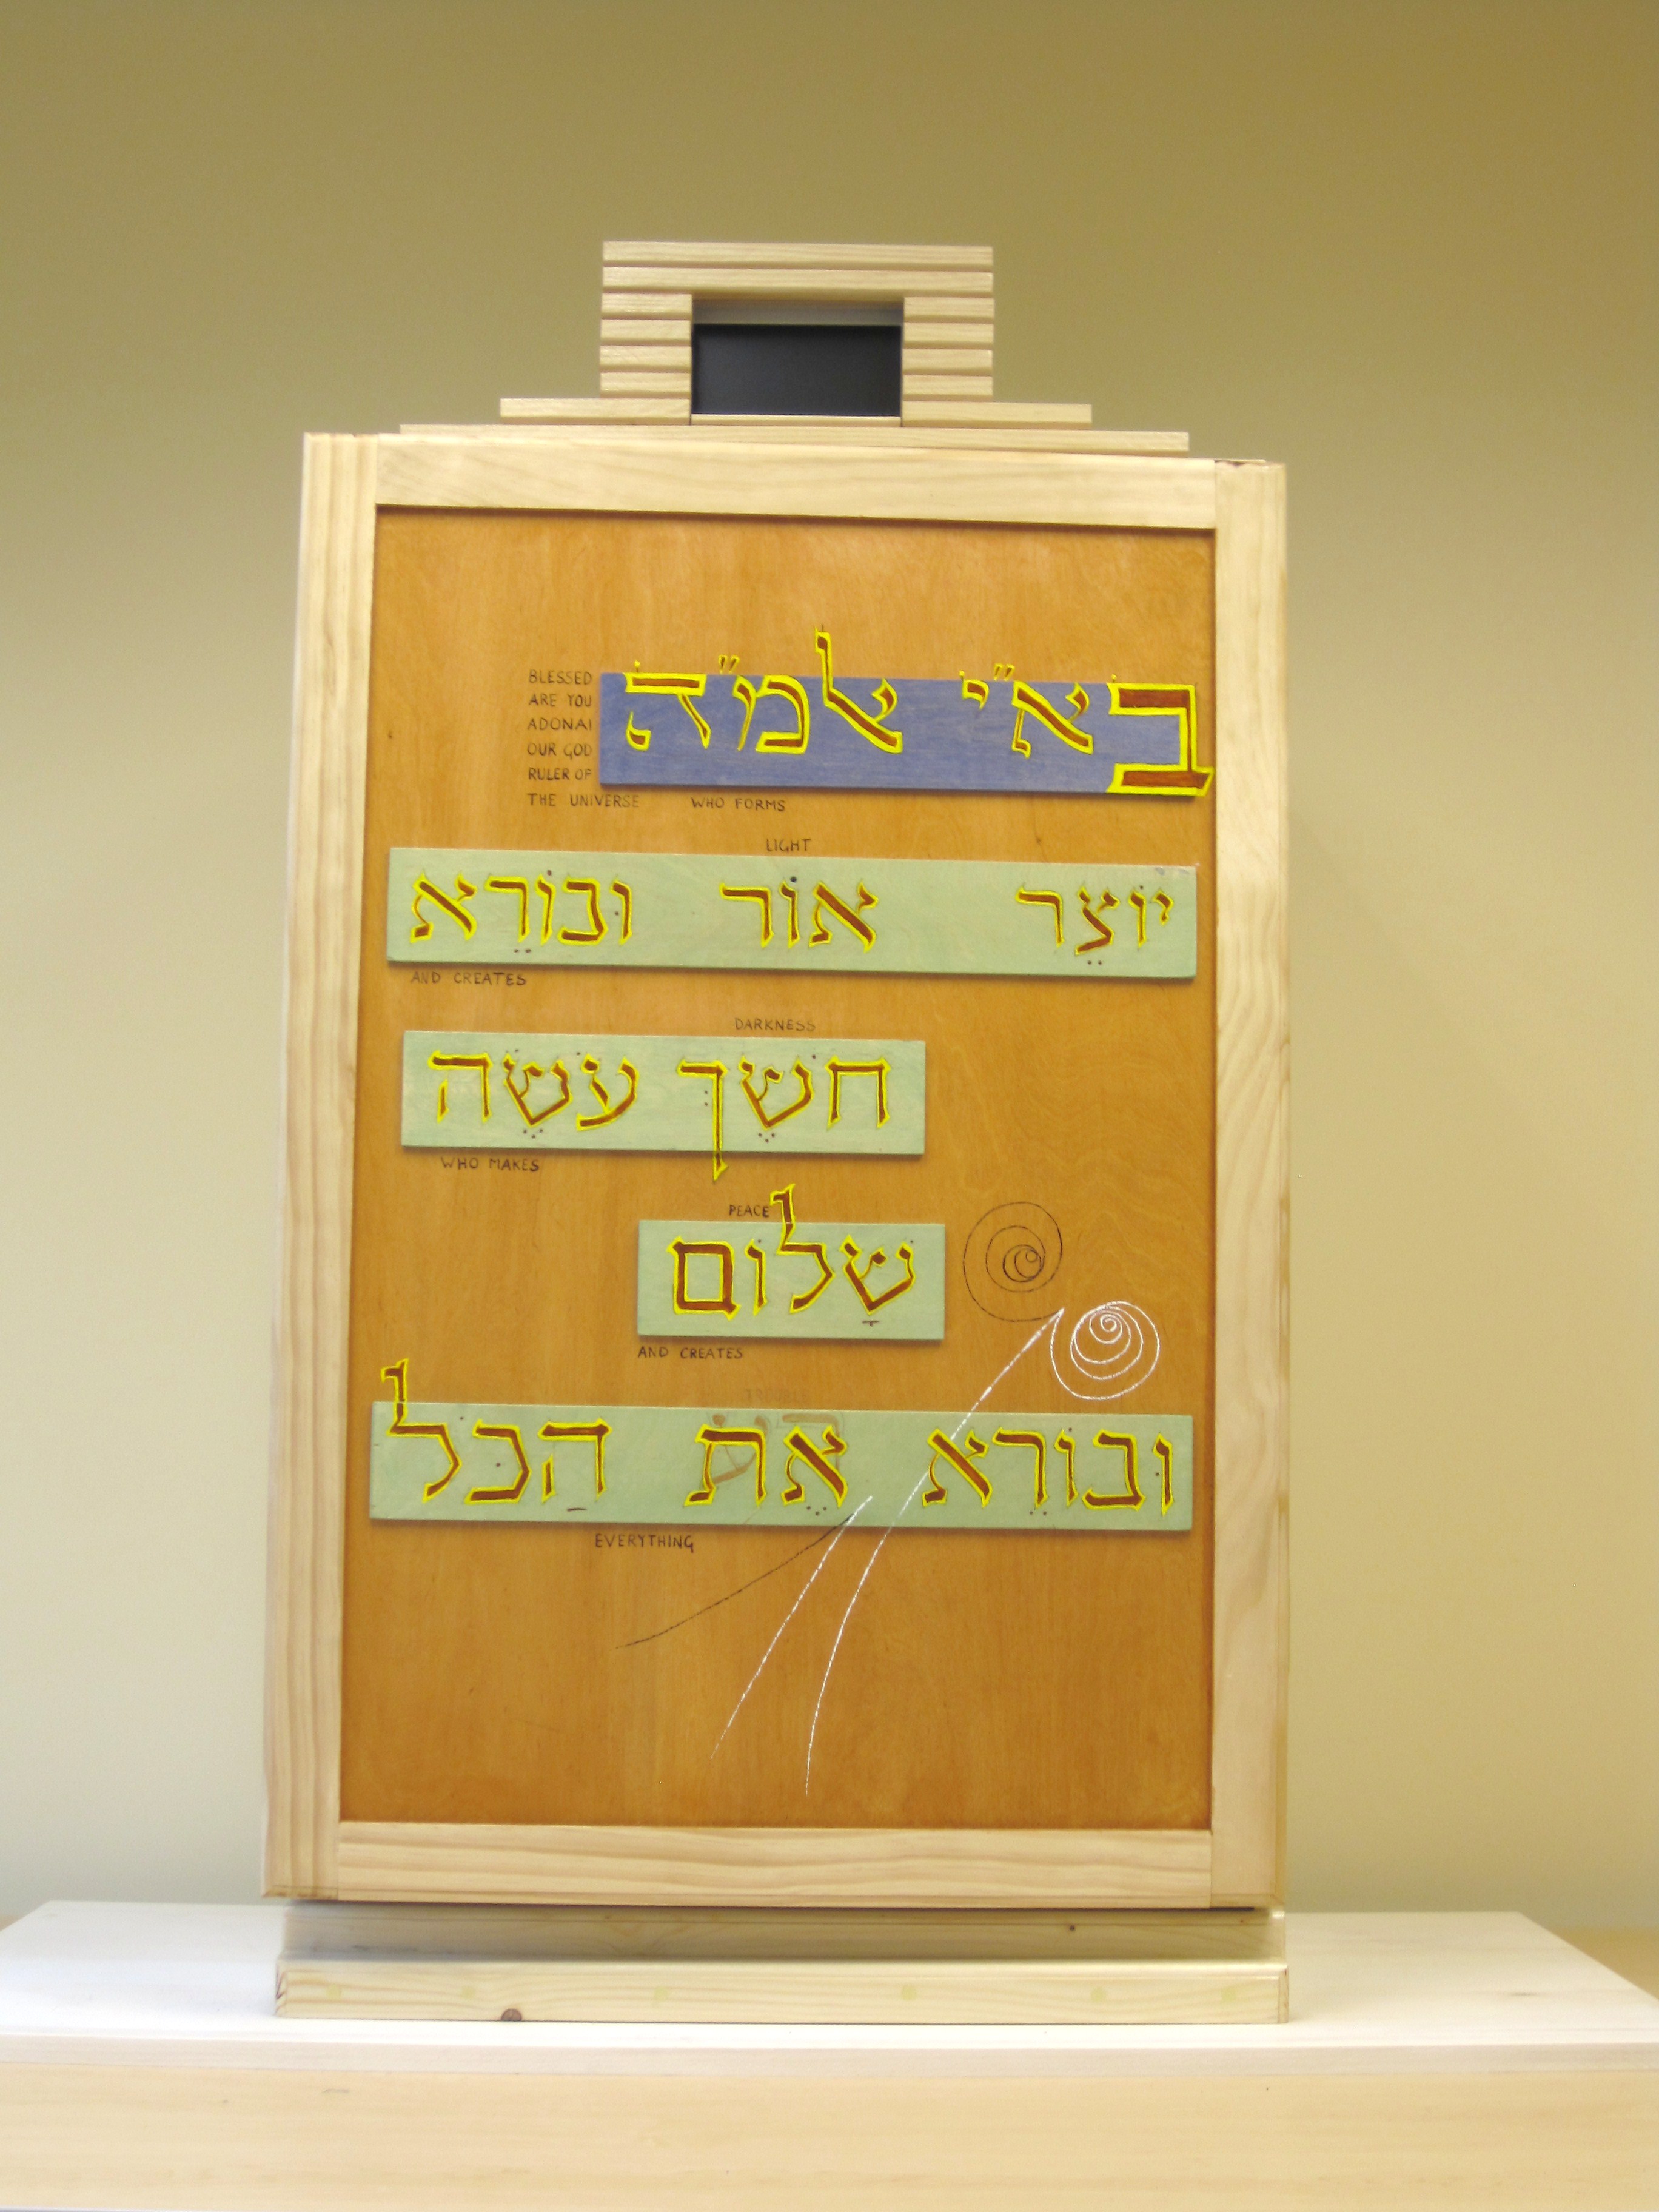 BLESSED
ARE YOU
ADONAI
OUR GOD
RULER OF
THE UNIVERSE
בא״י ﭏמ״ה
WHO FORMS
LIGHT
יוֹצֵר אוֹר וּבוֹרֵא
AND CREATES
DARKNESS
חֹשֶׁךְ עֹשֶׂה
WHO MAKES
PEACE
שָׁלוֹם
AND CREATES
TROUBLE
וּבוֹרֵא אֶת הַכֹּל
EVERYTHING